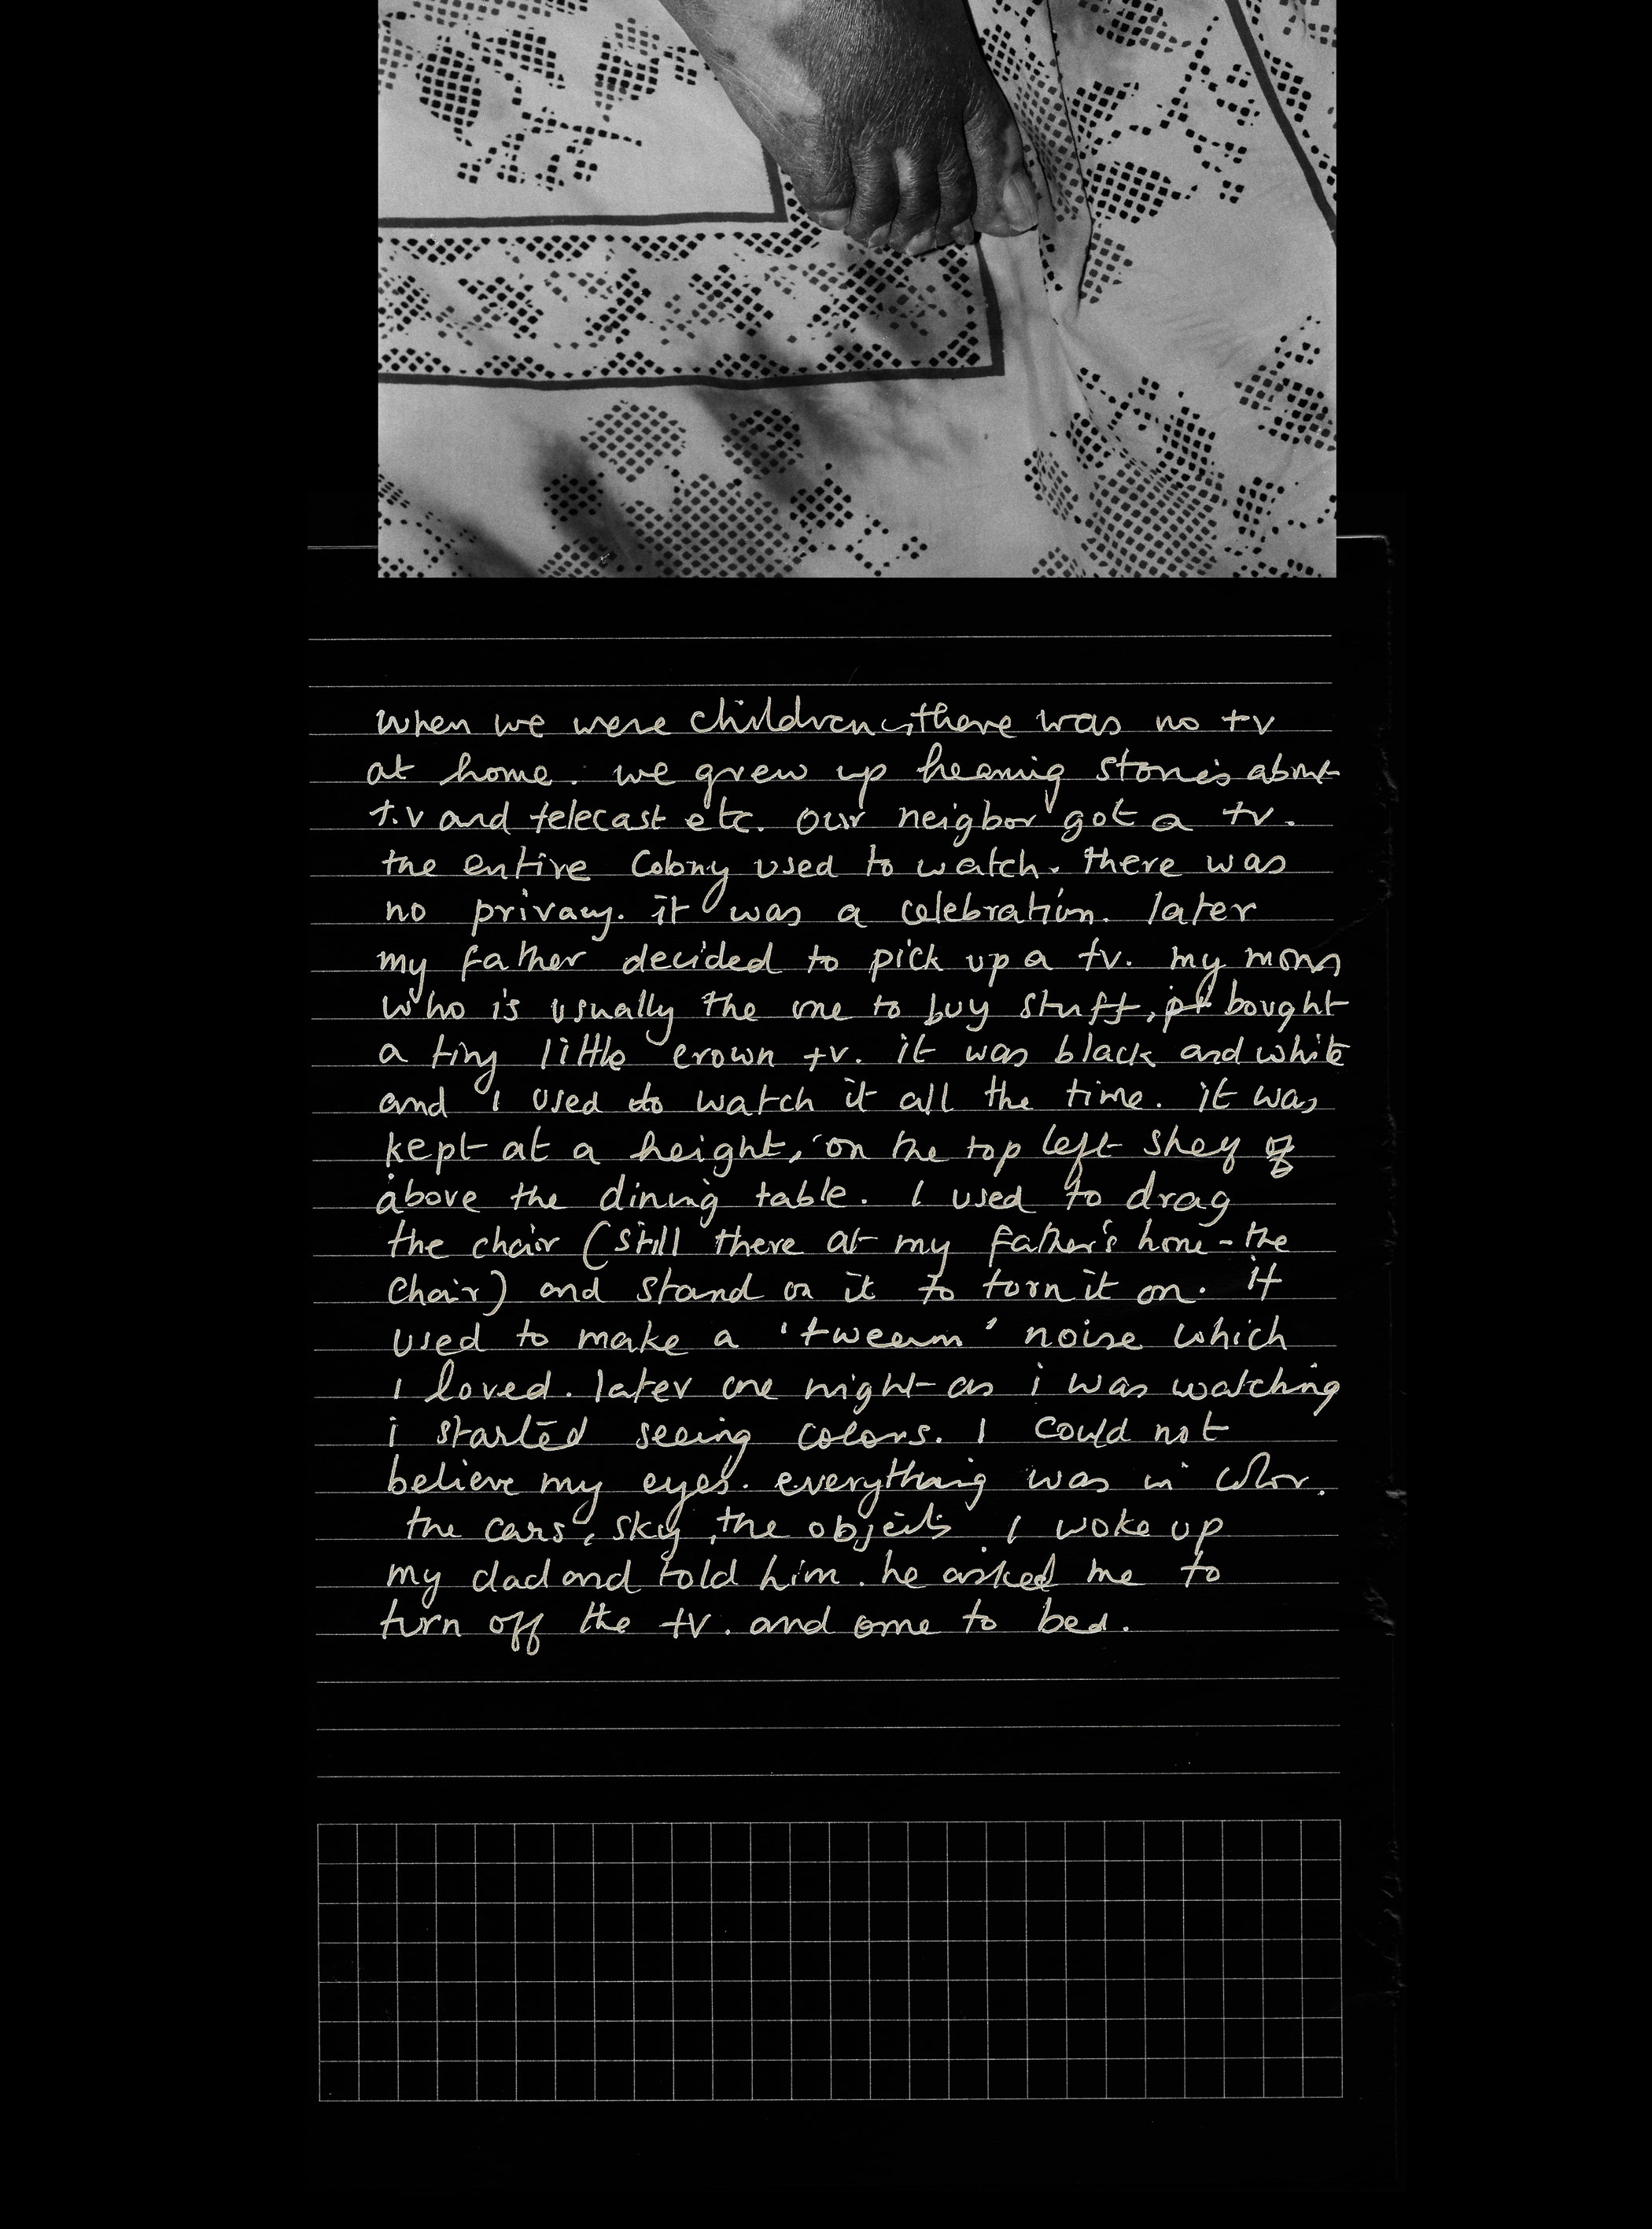 when we were children, there was no tv
at home. we grew up hearing stories about
t.v and telecast etc. our neigbor got a tv.
the entire colony used to watch. there was
no privacy. it was a celebration. later
my father decided to pick up a tv. my mom
who is usually the one to buy stuff, bought
a tiny little crown tv. it was black and white
and i used to watch it all the time. it was
kept at a height, on the top left shelf of
above the dining table. I used to drag
the chair (still there at my father's home - the
chair) and stand on it to turn it on. it
used to make a 'tweem' noise which
i loved. later one night as i was watching
i started seeing colors. I could not
believe my eyes. everything was in color.
the cars, sky, the objects I woke up
my dad and told him. he asked me to
turn off the tv. and come to bed.